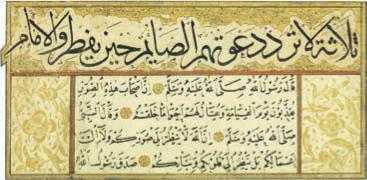 ثلاثة لا ترد دعوتهم الصايم حين يفطر والامام
قال رسول الله صلى الله عليه وسلم ان اصحاب هذه الصور
يعذبون يوم القيامة ويقال لهم احيوا ما خلقتم وقال النبي
صلى الله عليه وسلم ان الله لا ينظر الى صوركم ولا الى
اعمالكم بل ينظر الى قلوبكم ونياتكم صدق رسول الله